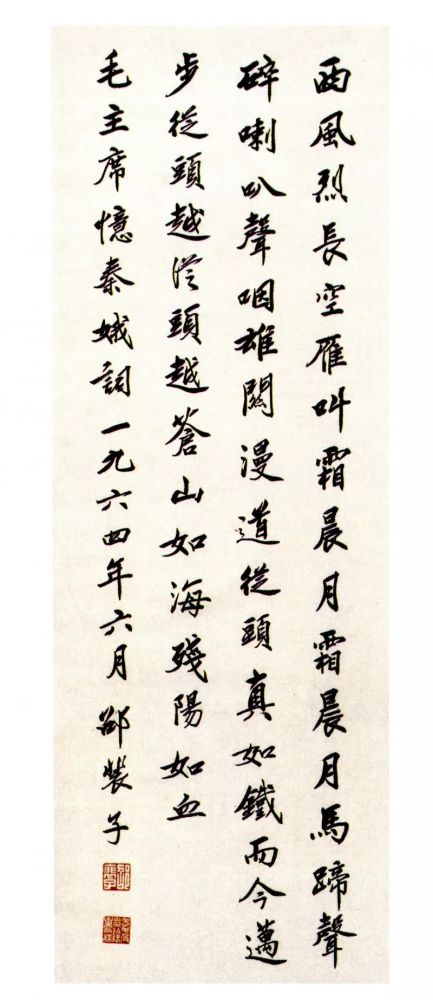 西風烈長空雁叫霜晨月霜晨月馬蹄聲
碎喇叭聲咽雄關漫道從頭真如鐵而今邁
步從頭越從頭越蒼山如海殘陽如血
毛主席憶秦娥詞一九六四年六月邵裴子